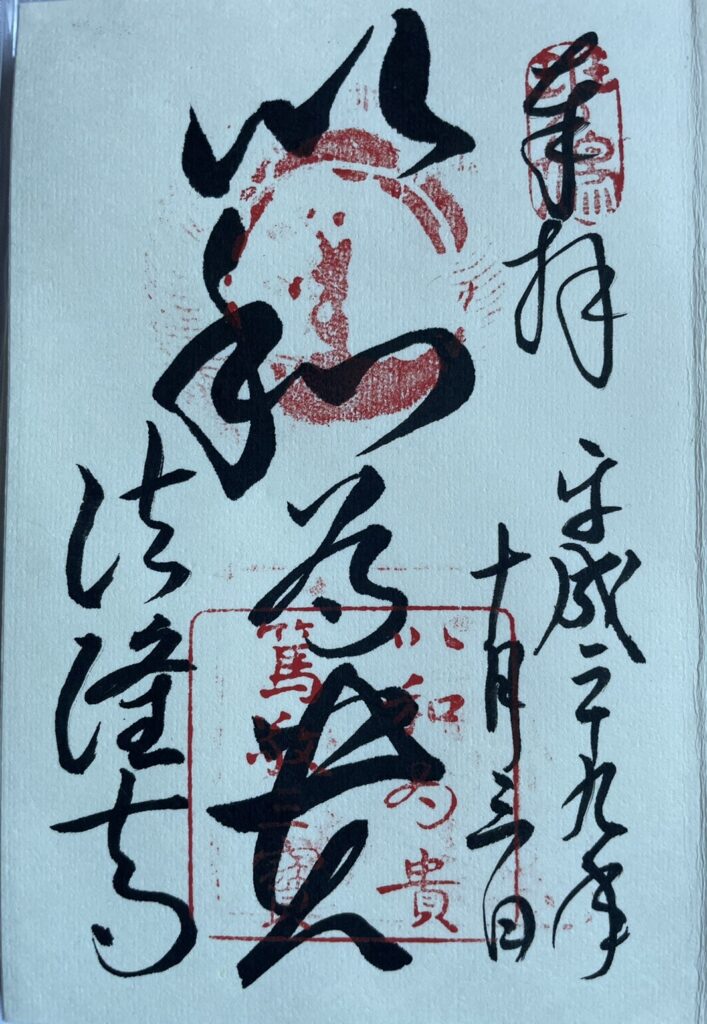 奉拝
平成二十九年
十月三日
以和為貴
以和為貴
篤敬三寶
法隆寺